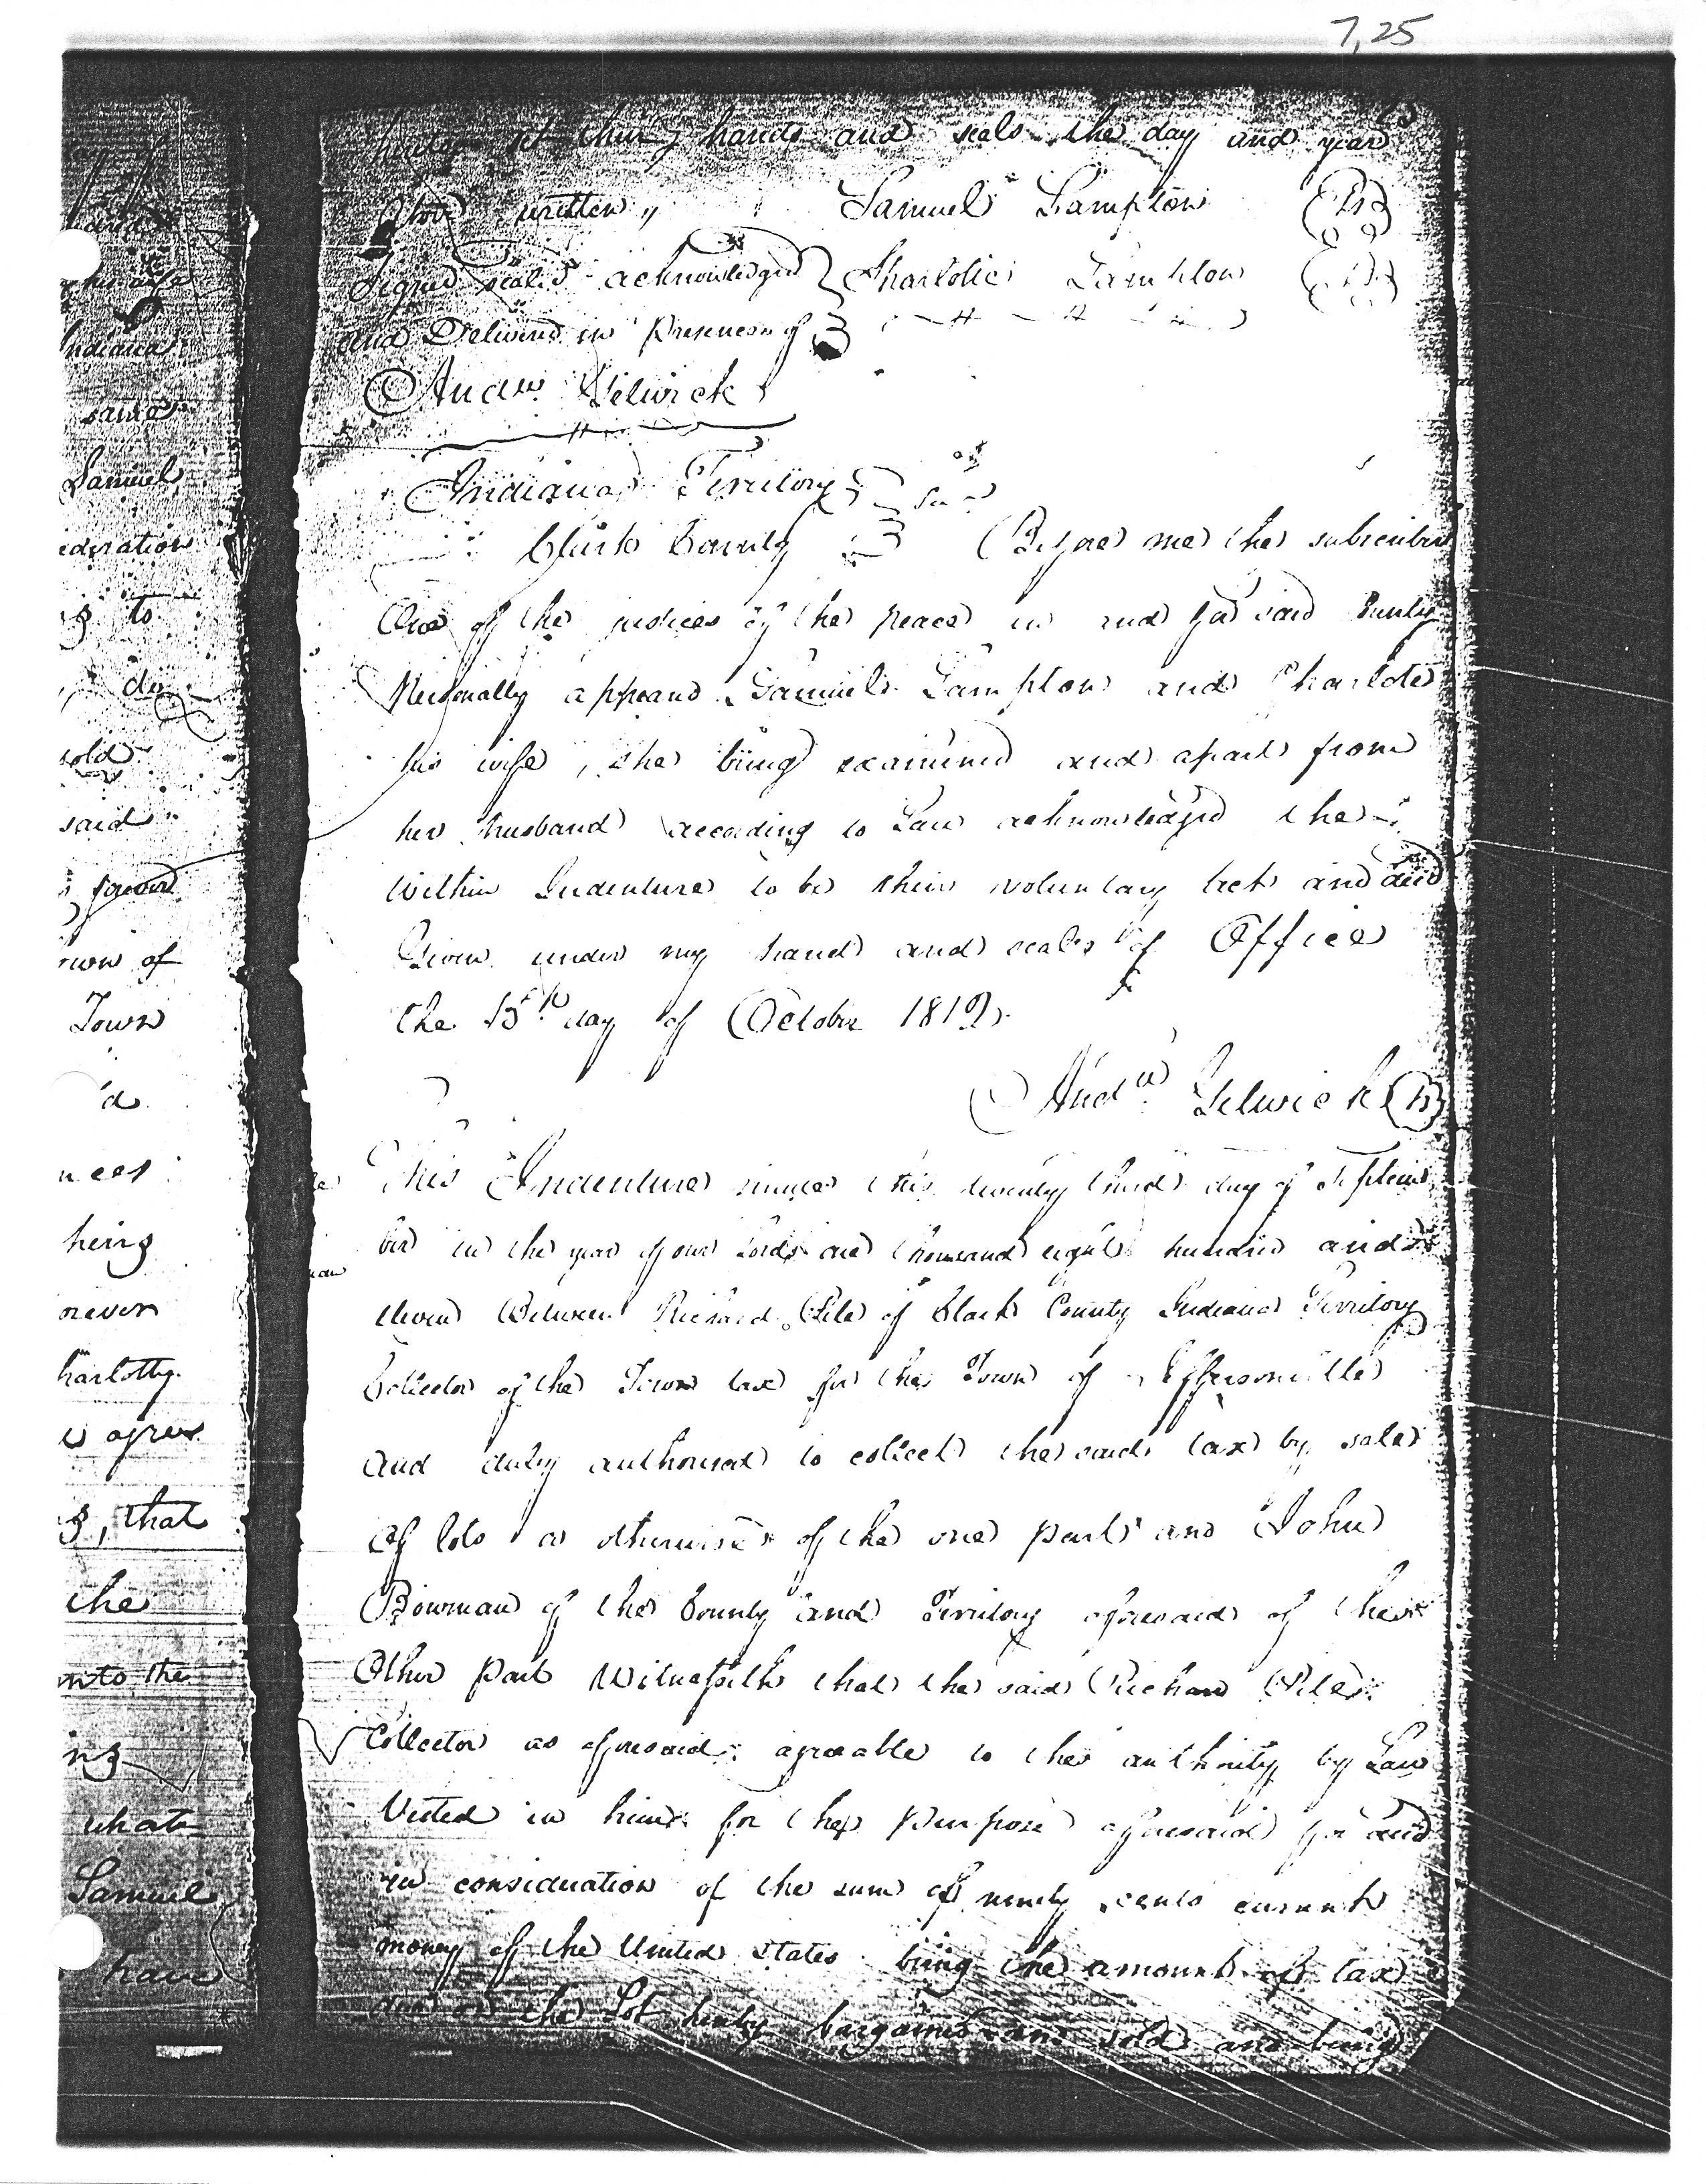 7,25
hereby set their hands and seals the day and year
above written
Samuel Lampton
Signed sealed acknowledged
Charlotte Lampton
and Delivered in Presence of
Andw Gelwick
Indiana Territory
Clark County
Before me the subscriber
One of the justices of the peace in and for said County
Personally appeared Samuel Lampton and Charlotte
his wife, she being examined and apart from
her husband according to Law acknowledged the
within Indenture to be their voluntary act and deed
Given under my hand and seal of Office
the 15th day of October 1812
Andw Gelwick
This Indenture made this twenty third day of Septem
ber in the year of our Lord one thousand eight hundred and
eleven Between Richard Pile of Clark County Indiana Territory
Collector of the Town tax for the Town of Jeffersonville
and duly authorised to collect the said tax by sale
of lots or otherwise of the one part and John
Bowman of the County and Territory aforesaid of the
Other part Witnesseth that the said Richard Pile
Collector as aforesaid agreeable to the authority by Law
Vested in him for the purpose aforesaid for and
in consideration of the sum of ninety cents current
money of the United States being the amount of tax
due on the Lot hereby bargained and sold and being
Indiana
same
Samuel
ideration
to
sold
said
own of
Town
d
hing
never
harlotty
agree
that
the
nto the
what
Samuel
have